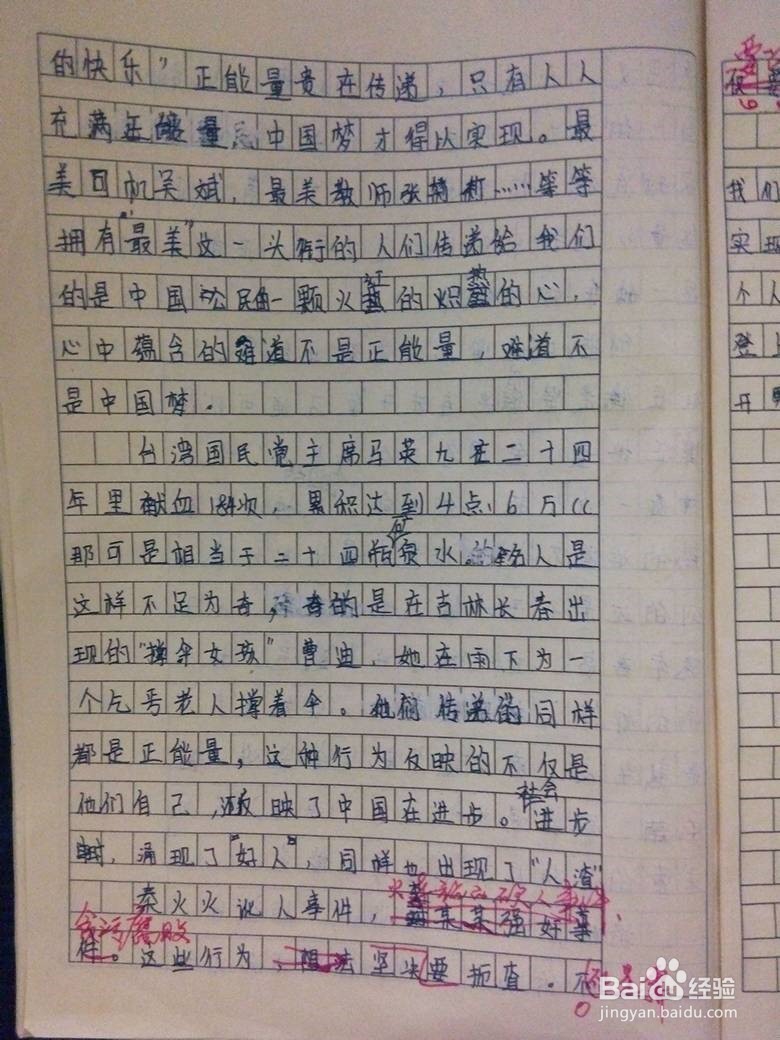 的快乐”正能量贵在传递，只有人人
充满正能量，中国梦才得以实现。最
美司机吴斌，最美教师张莉莉……等等
拥有“最美”这一头衔的人们传递给我们
的是中国公民的一颗火红的炽热的心，
心中蕴含的难道不是正能量，难道不
是中国梦．
台湾国民党主席马英九在二十四
年里献血184次，累积达到4点6万cc
那可是相当于二十四瓶矿泉水
这样不足为奇，奇的是在吉林长春出
现的“撑伞女孩”曹迪，她在雨下为一
个乞丐老人撑着伞。他们传递的同样
都是正能量，这种行为反映的不仅是
他们自己，还反映了中国在进步。社会进步
时，涌现了“好人”，同样也出现了“人渣”
火火 人事件，某某强奸案
贪污腐败
件。这些行为，想法坚决要扼杀．
我们
实现
个人
登上
Bai du 经验
jingyan.baidu.com